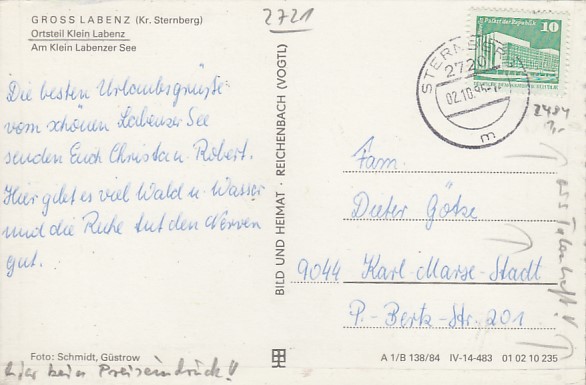 GROSS LABENZ (Kr. Sternberg)
Ortsteil Klein Labenz
Am Klein Labenzer See
2721
Die besten Urlaubsgrüße
vom schönen Labenzer See
senden Euch Christa u. Robert.
Hier gibt es viel Wald u. Wasser
und die Ruhe tut den Nerven
gut.
Foto: Schmidt, Güstrow
hier kein Preiseindruck!!
BILD UND HEIMAT · REICHENBACH (VOGTL)
Palast der Republik
10
STERNBERG
2720
02.10.
m
2484
Fam.
Dieter Götze
9044 Karl-Marx-Stadt
P.-Bertz-Str. 201
A 1/B 138/84 IV-14-483 01 02 10 235